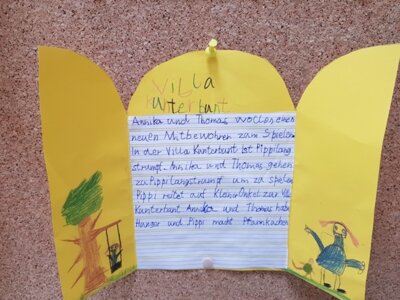 Villa
Kunterbunt
Annika und Thomas wollen einen
neuen Mitbewohner zum Spielen
In der Villa Kunterbunt ist Pippilang
strumpf. Annika und Thomas gehen
zu Pippi Langstrumpf um zu spielen
Pippi reitet auf Kleiner Onkel zur Vill
Kunterbunt Annika und Thomas habe
Hunger und Pippi macht Pfannkuchen